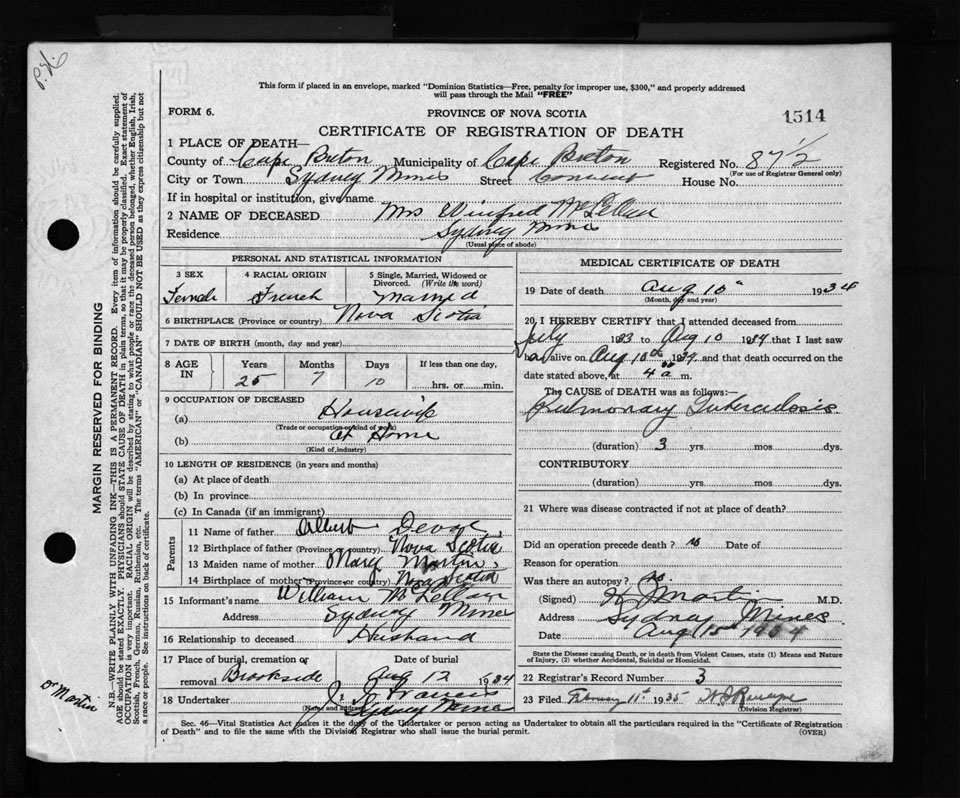 P.H.
This form if placed in an envelope, marked "Dominion Statistics—Free, penalty for improper use, $300," and properly addressed
will pass through the Mail "FREE"
FORM 6. PROVINCE OF NOVA SCOTIA 1514
CERTIFICATE OF REGISTRATION OF DEATH
1 PLACE OF DEATH—
County of Cape Breton Municipality of Cape Breton Registered No. 87 1/2
(For use of Registrar General only)
City or Town Sydney Mines Street Convent House No.
If in hospital or institution, give name
2 NAME OF DECEASED Mrs Winifred McLellan
Residence Sydney Mines
(Usual place of abode)
PERSONAL AND STATISTICAL INFORMATION
3 SEX 4 RACIAL ORIGIN 5 Single, Married, Widowed or
Divorced. (Write the word)
Female French Married
6 BIRTHPLACE (Province or country) Nova Scotia
7 DATE OF BIRTH (month, day and year)
8 AGE IN Years Months Days If less than one day,
25 7 10 hrs. or min.
9 OCCUPATION OF DECEASED
(a) Housewife
(Trade or occupation or kind of work)
(b) at Home
(Kind of industry)
10 LENGTH OF RESIDENCE (in years and months)
(a) At place of death
(b) In province
(c) In Canada (if an immigrant)
Parents
11 Name of father Albert
12 Birthplace of father (Province or country) Nova Scotia
13 Maiden name of mother Mary Martin
14 Birthplace of mother (Province or country) Nova Scotia
15 Informant's name William McLellan
Address Sydney Mines
16 Relationship to deceased Husband
17 Place of burial, cremation or Date of burial
removal Brookside Aug 12 1934
18 Undertaker J. J. Francis
(Name and address) Sydney Mines
MEDICAL CERTIFICATE OF DEATH
19 Date of death Aug 10th 1934
(Month, day and year)
20 I HEREBY CERTIFY that I attended deceased from
July 1933 to Aug 10 1934 that I last saw
her alive on Aug 10th 1934 and that death occurred on the
date stated above, at 4 00 a m.
The CAUSE OF DEATH was as follows:
Pulmonary Tuberculosis
(duration) 3 yrs. mos. dys.
CONTRIBUTORY
(duration) yrs. mos. dys.
21 Where was disease contracted if not at place of death?
Did an operation precede death? no Date of
Reason for operation
Was there an autopsy? no
(Signed) Martin M.D.
Address Sydney Mines
Date Aug 15th 1934
State the Disease causing Death, or in death from Violent Causes, state (1) Means and Nature
of Injury, (2) whether Accidental, Suicidal or Homicidal.
22 Registrar's Record Number 3
23 Filed February 11th 1935
(Division Registrar)
Sec. 46—Vital Statistics Act makes it the duty of the Undertaker or person acting as Undertaker to obtain all the particulars required in the "Certificate of Registration
of Death" and to file the same with the Division Registrar who shall issue the burial permit. (OVER)
MARGIN RESERVED FOR BINDING
N.B.—WRITE PLAINLY WITH UNFADING INK—THIS IS A PERMANENT RECORD. Every item of information should be carefully supplied.
AGE should be stated EXACTLY. PHYSICIANS should STATE CAUSE OF DEATH in plain terms, so that it may be properly classified. Exact statement of
OCCUPATION is very important. RACIAL ORIGIN will be described by stating to what people or race the deceased person belonged, whether English, Irish,
Scottish, French, German, Russian, Ruthenian, etc. The terms "AMERICAN" or "CANADIAN" SHOULD NOT BE USED as they express citizenship but not
a race or people. See instructions on back of certificate.
Dr Martin